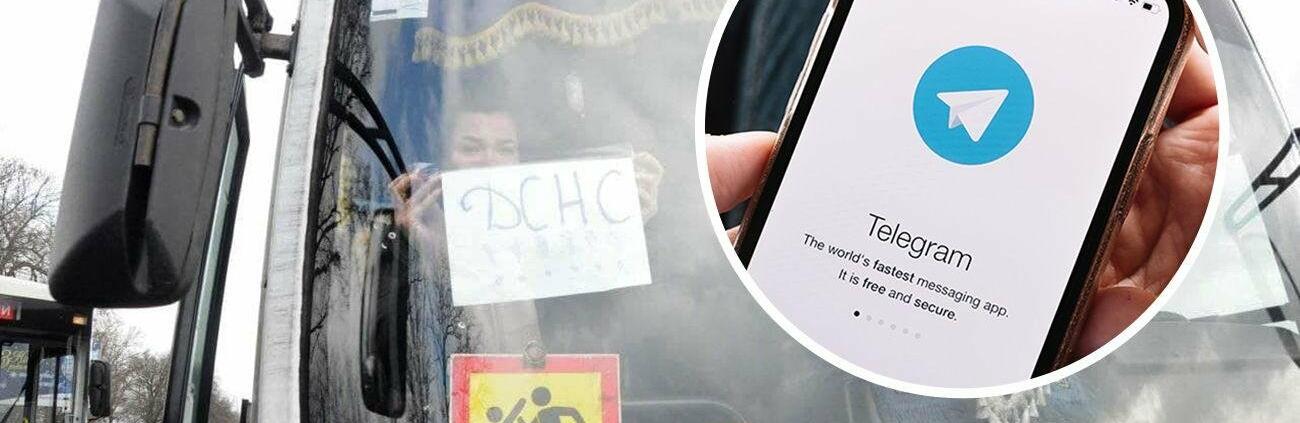 ДСНС
Telegram
The world's fastest messaging app.
It is free and secure.